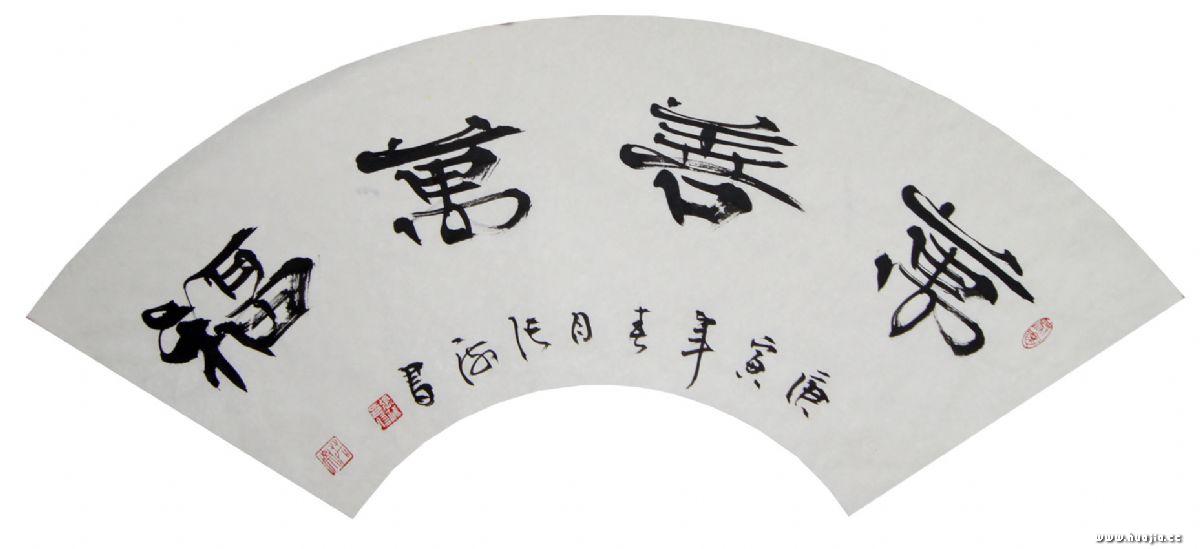 萬善萬福
庚寅年春月张 书
www.huajia.cc